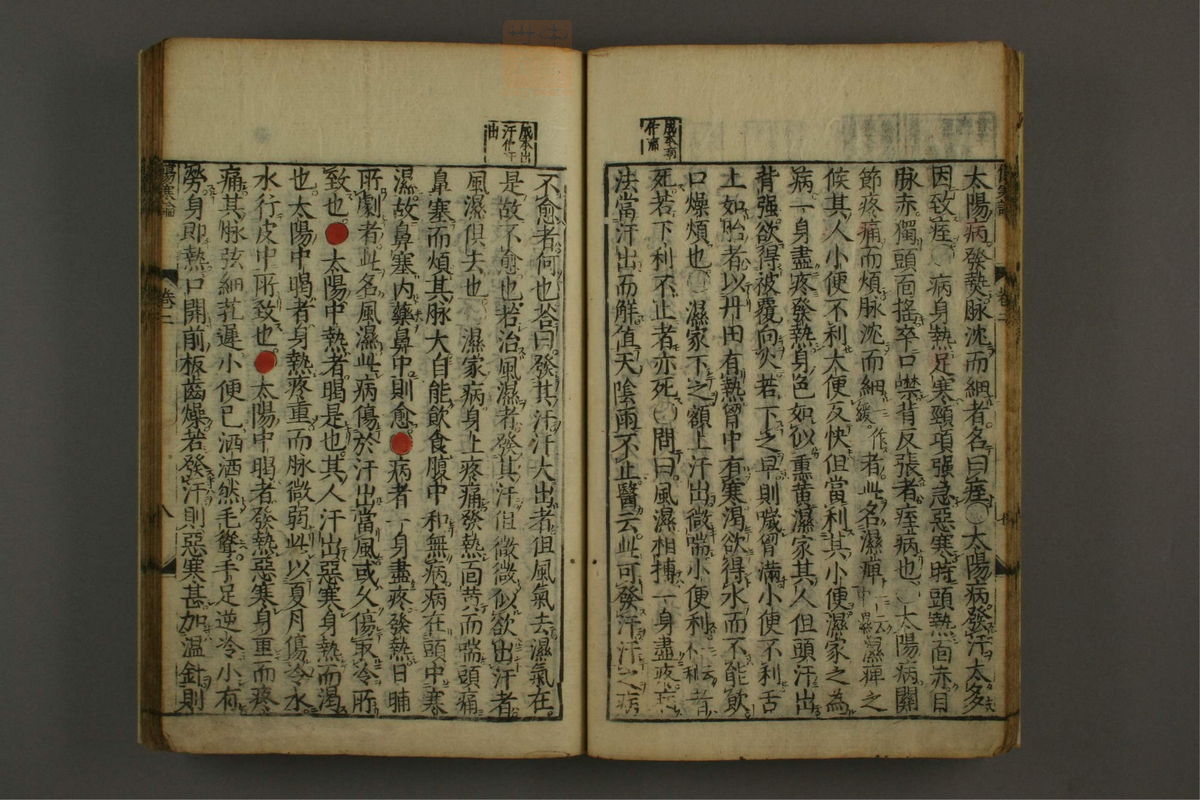 成本痛
作疼
太陽病發熱脉沈而細者名曰痓太陽病發汗太多
因致痓病身熱足寒頸項强急惡寒時頭熱面赤目
脉赤獨頭面搖卒口噤背反張者痓病也太陽病關
節疼痛而煩脉沈而細作緩者此名濕痺一云中濕濕痺之
候其人小便不利大便反快但當利其小便濕家之為
病一身盡疼發熱身色如似熏黄濕家其人但頭汗出
背强欲得被覆向火若下之早則噦胷滿小便不利舌
上如胎者以丹田有熱胷中有寒渴欲得水而不能飲
口燥煩也濕家下之額上汗出微喘小便利者
死若下利不止者亦死問曰風濕相搏一身盡疼
法當汗出而解值天陰雨不止醫云此可發汗汗之病
成本出
汗作汗
出
不愈者何也荅曰發其汗汗大出者但風氣去濕氣在
是故不愈也若治風濕者發其汗但微微似欲出汗者
風濕俱去也濕家病身上疼痛發熱面黄而喘頭痛
鼻塞而煩其脉大自能飲食腹中和無病病在頭中寒
濕故鼻塞内藥鼻中則愈病者一身盡疼發熱日晡
所劇者此名風濕此病傷於汗出當風或久傷取冷所
致也太陽中熱者暍是也其人汗出惡寒身熱而渴
也太陽中暍者身熱疼重而脉微弱此以夏月傷冷水
水行皮中所致也太陽中暍者發熱惡寒身重而疼
痛其脉弦細芤遲小便已洒洒然毛聳手足逆冷小有
勞身即熱口開前板齒燥若發汗則惡寒甚加温針則
傷寒論
卷二
八